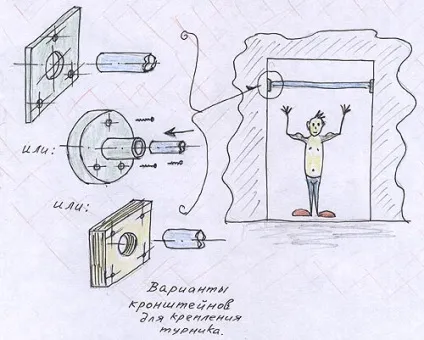 или:
или:
Варианты
кронштейнов
для крепления
турника.